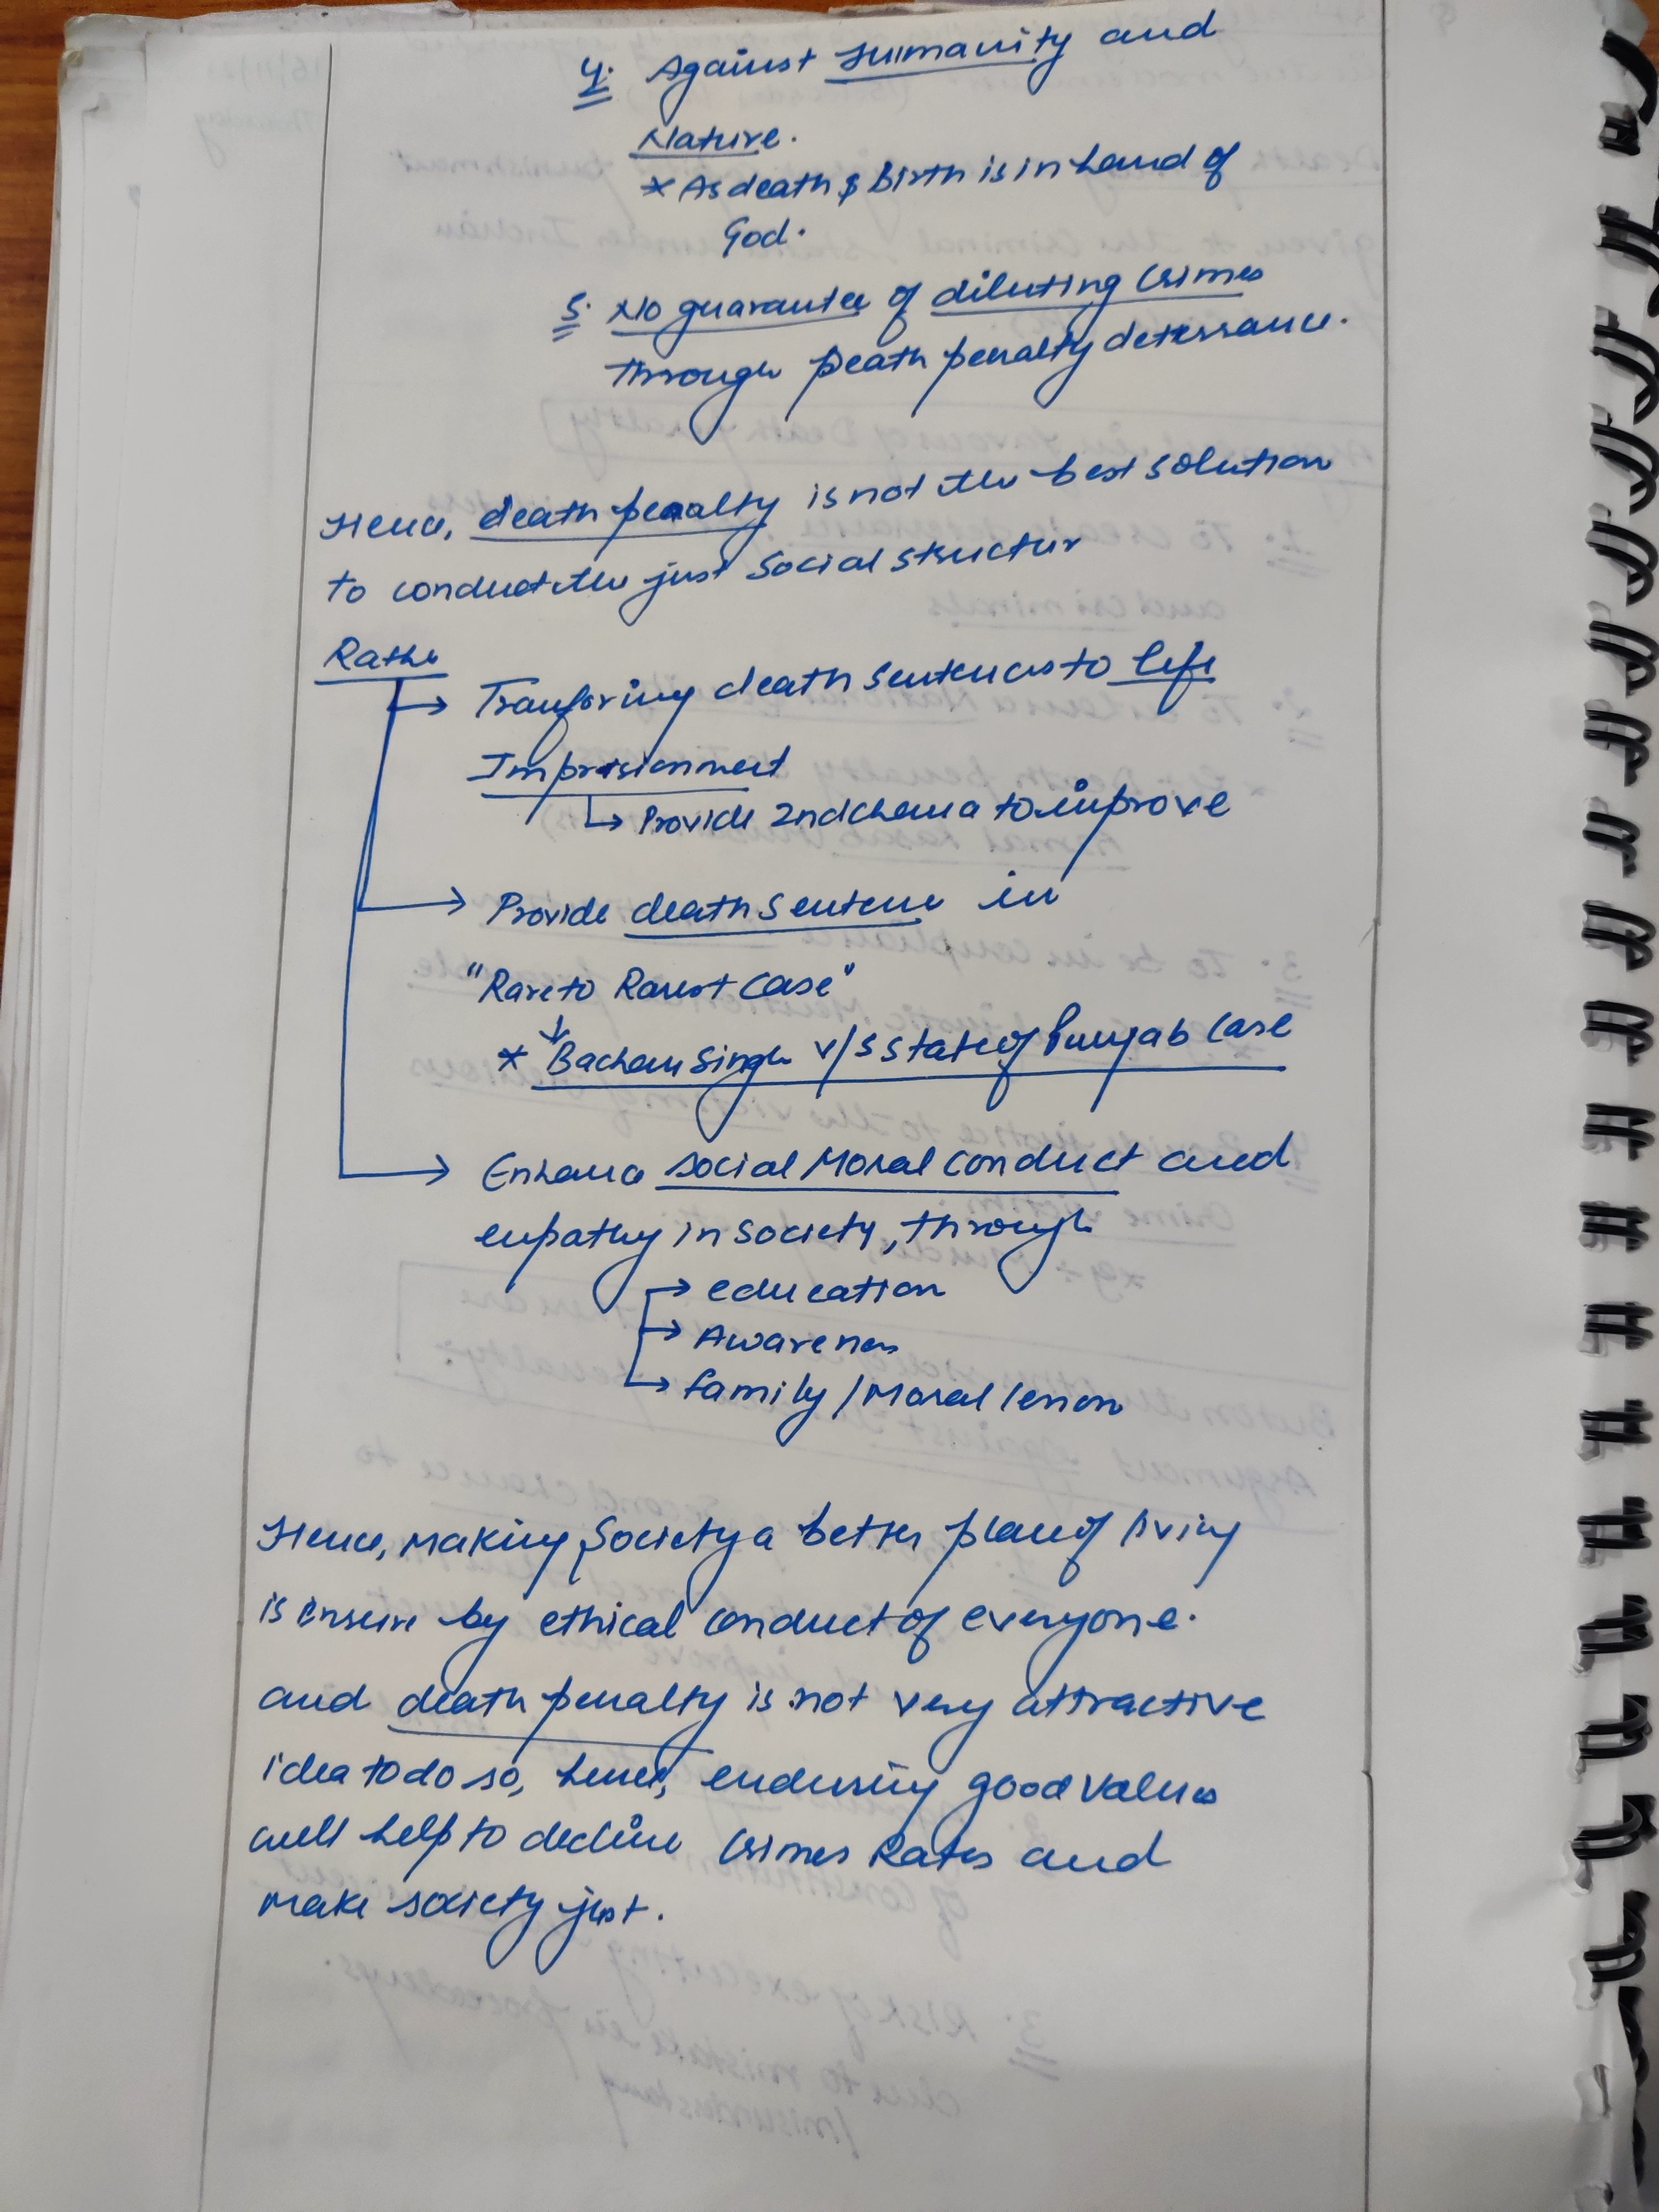 4. Against Humanity and
Nature.
* As death & Birth is in hand of
God.
5. No guarantee of diluting Crimes
Through Death penalty deterrance.
Hence, death penalty is not the best solution
to conduct the just Social structur
Rathe
→ Tranforing death Sentences to life
Imprisionment
↳ Provide 2nd chance to improve
→ Provide death sentence in
"Rare to Rarest Case"
* Bachan Singh v/s State of Punjab Case
→ Enhance social Moral conduct and
empathy in society, through
→ education
→ Awareness
→ family / Moral lesson
Hence, Making Society a better place of living
is ensure by ethical conduct of everyone.
and death penalty is not very attractive
idea to do so, hence, endusing good values
will help to decline Crimes Rates and
make society just.